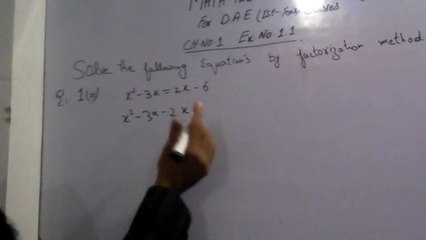 MATH
For D.A.E (1st-Year
CH No 1 Ex No 1.1
Solve the following Equation's by factorization method
Q:- 1(ii) x²-3x=2x-6
x²-3x-2x